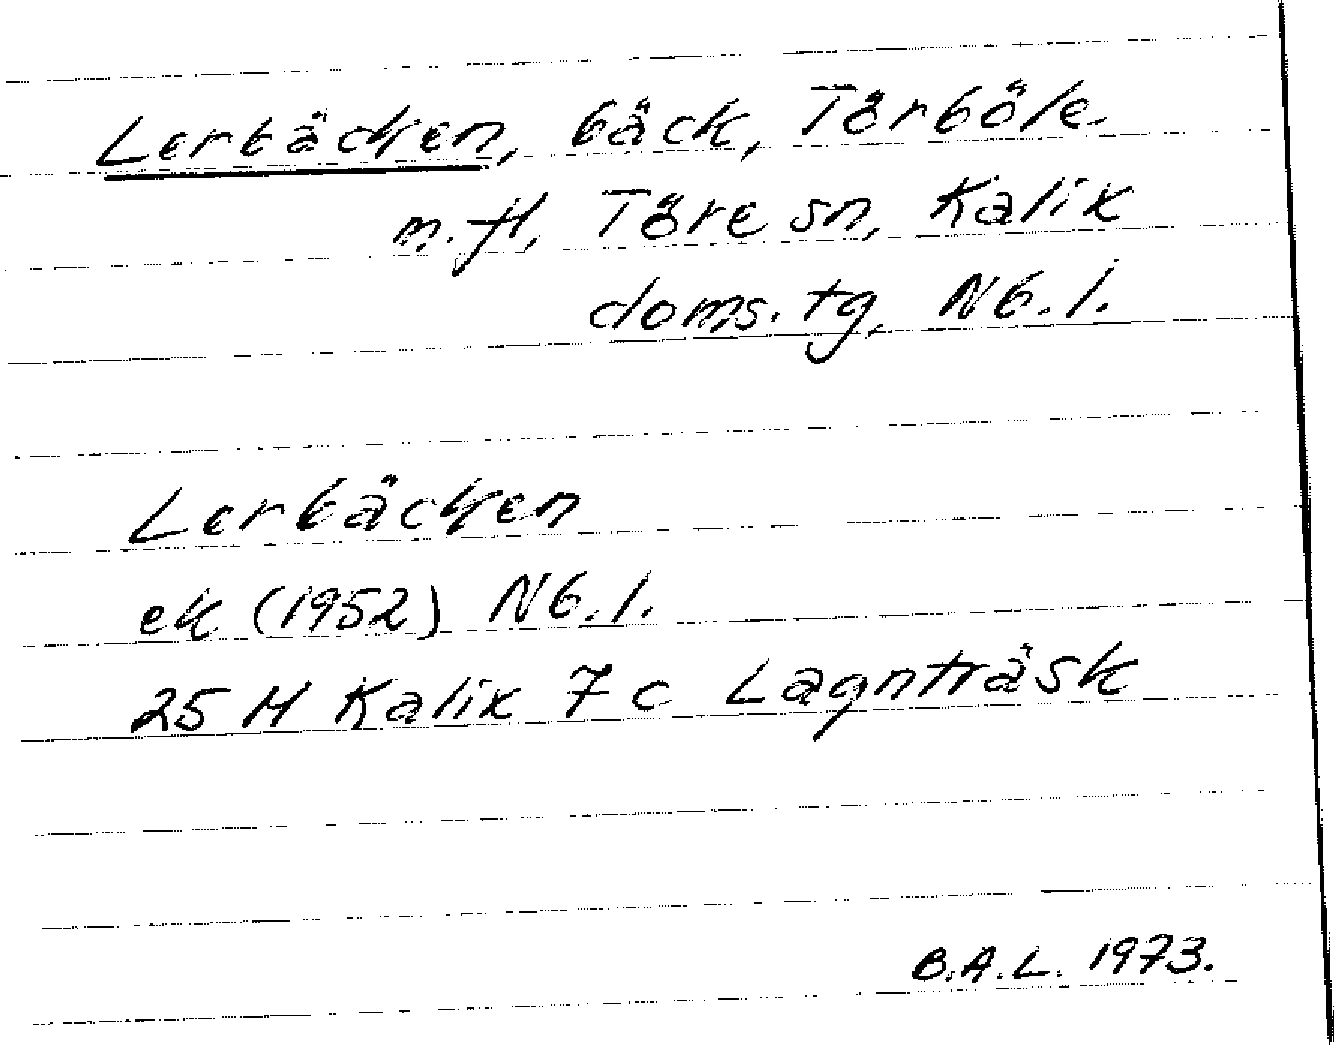 Lerbäcken, bäck, Törböle
m.fl, Töre sn, Kalix
doms.tg, Nb.l.
Lerbäcken
ek (1952) Nb.l.
25 M Kalix 7 c Lagnträsk
B.A.L. 1973.